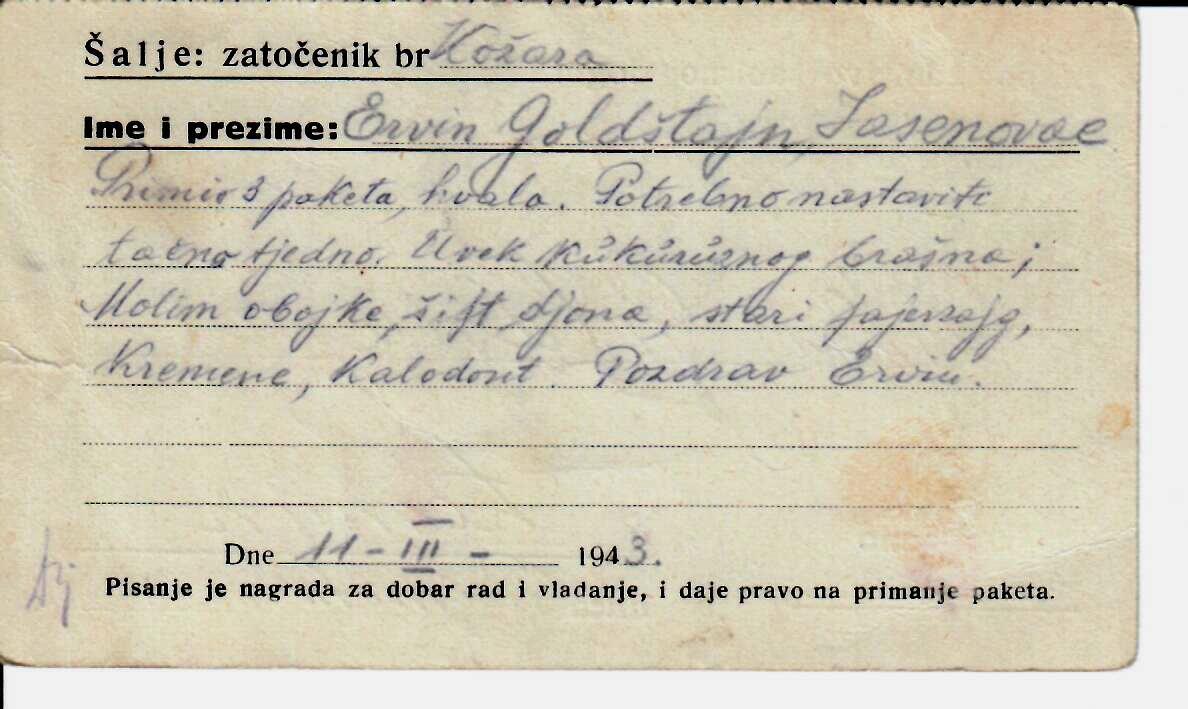 Šalje: zatočenik br Kožara
Ime i prezime: Ervin Goldštajn, Jasenovac
Primio 3 paketa, hvala. Potrebno nastaviti
tačno tjedno. Uvek kukuruznog brašna;
Molim obojke, šift djona, stari fajercajg,
Kremene, Kalodont. Pozdrav Ervin.
Dne 11-III- 1943.
Pisanje je nagrada za dobar rad i vladanje, i daje pravo na primanje paketa.